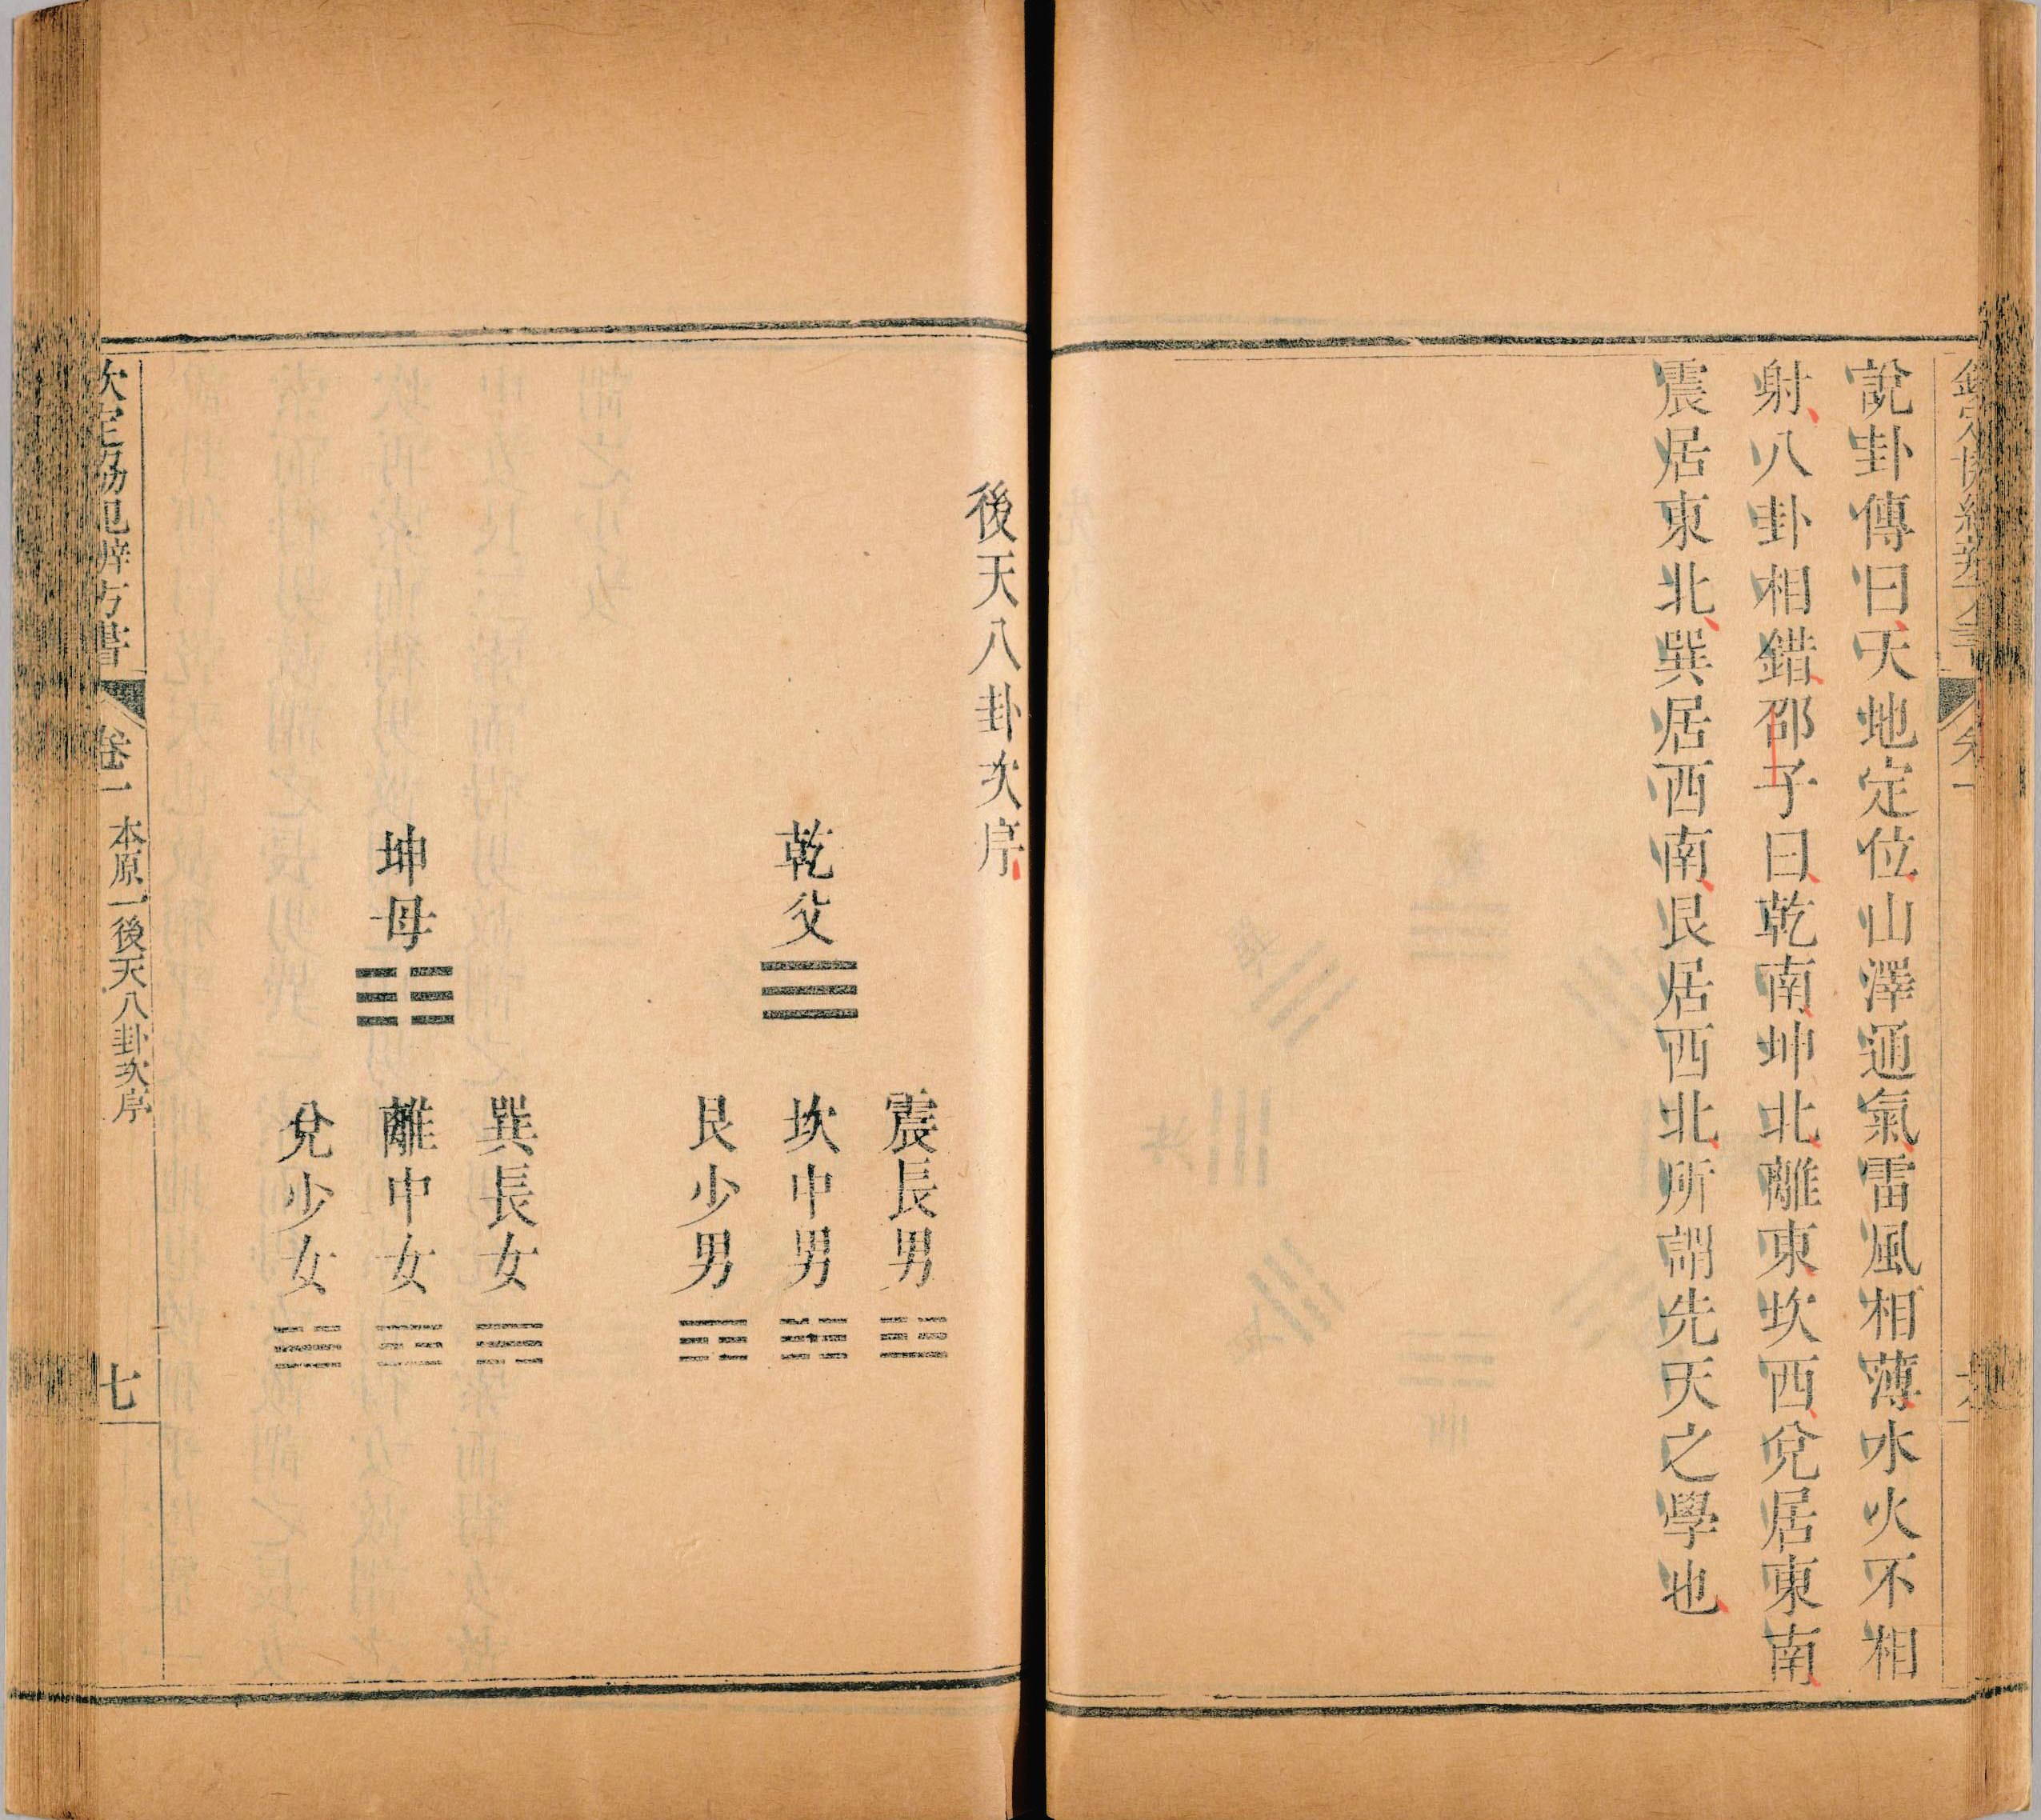 說卦傳曰天地定位山澤通氣雷風相薄水火不相
射八卦相錯邵子曰乾南坤北離東坎西兌居東南
震居東北巽居西南艮居西北所謂先天之學也
後天八卦次序
乾父☰
震長男☳
坎中男☵
艮少男☶
坤母☷
巽長女☴
離中女☲
兌少女☱
卷一 本原一 後天八卦次序 七